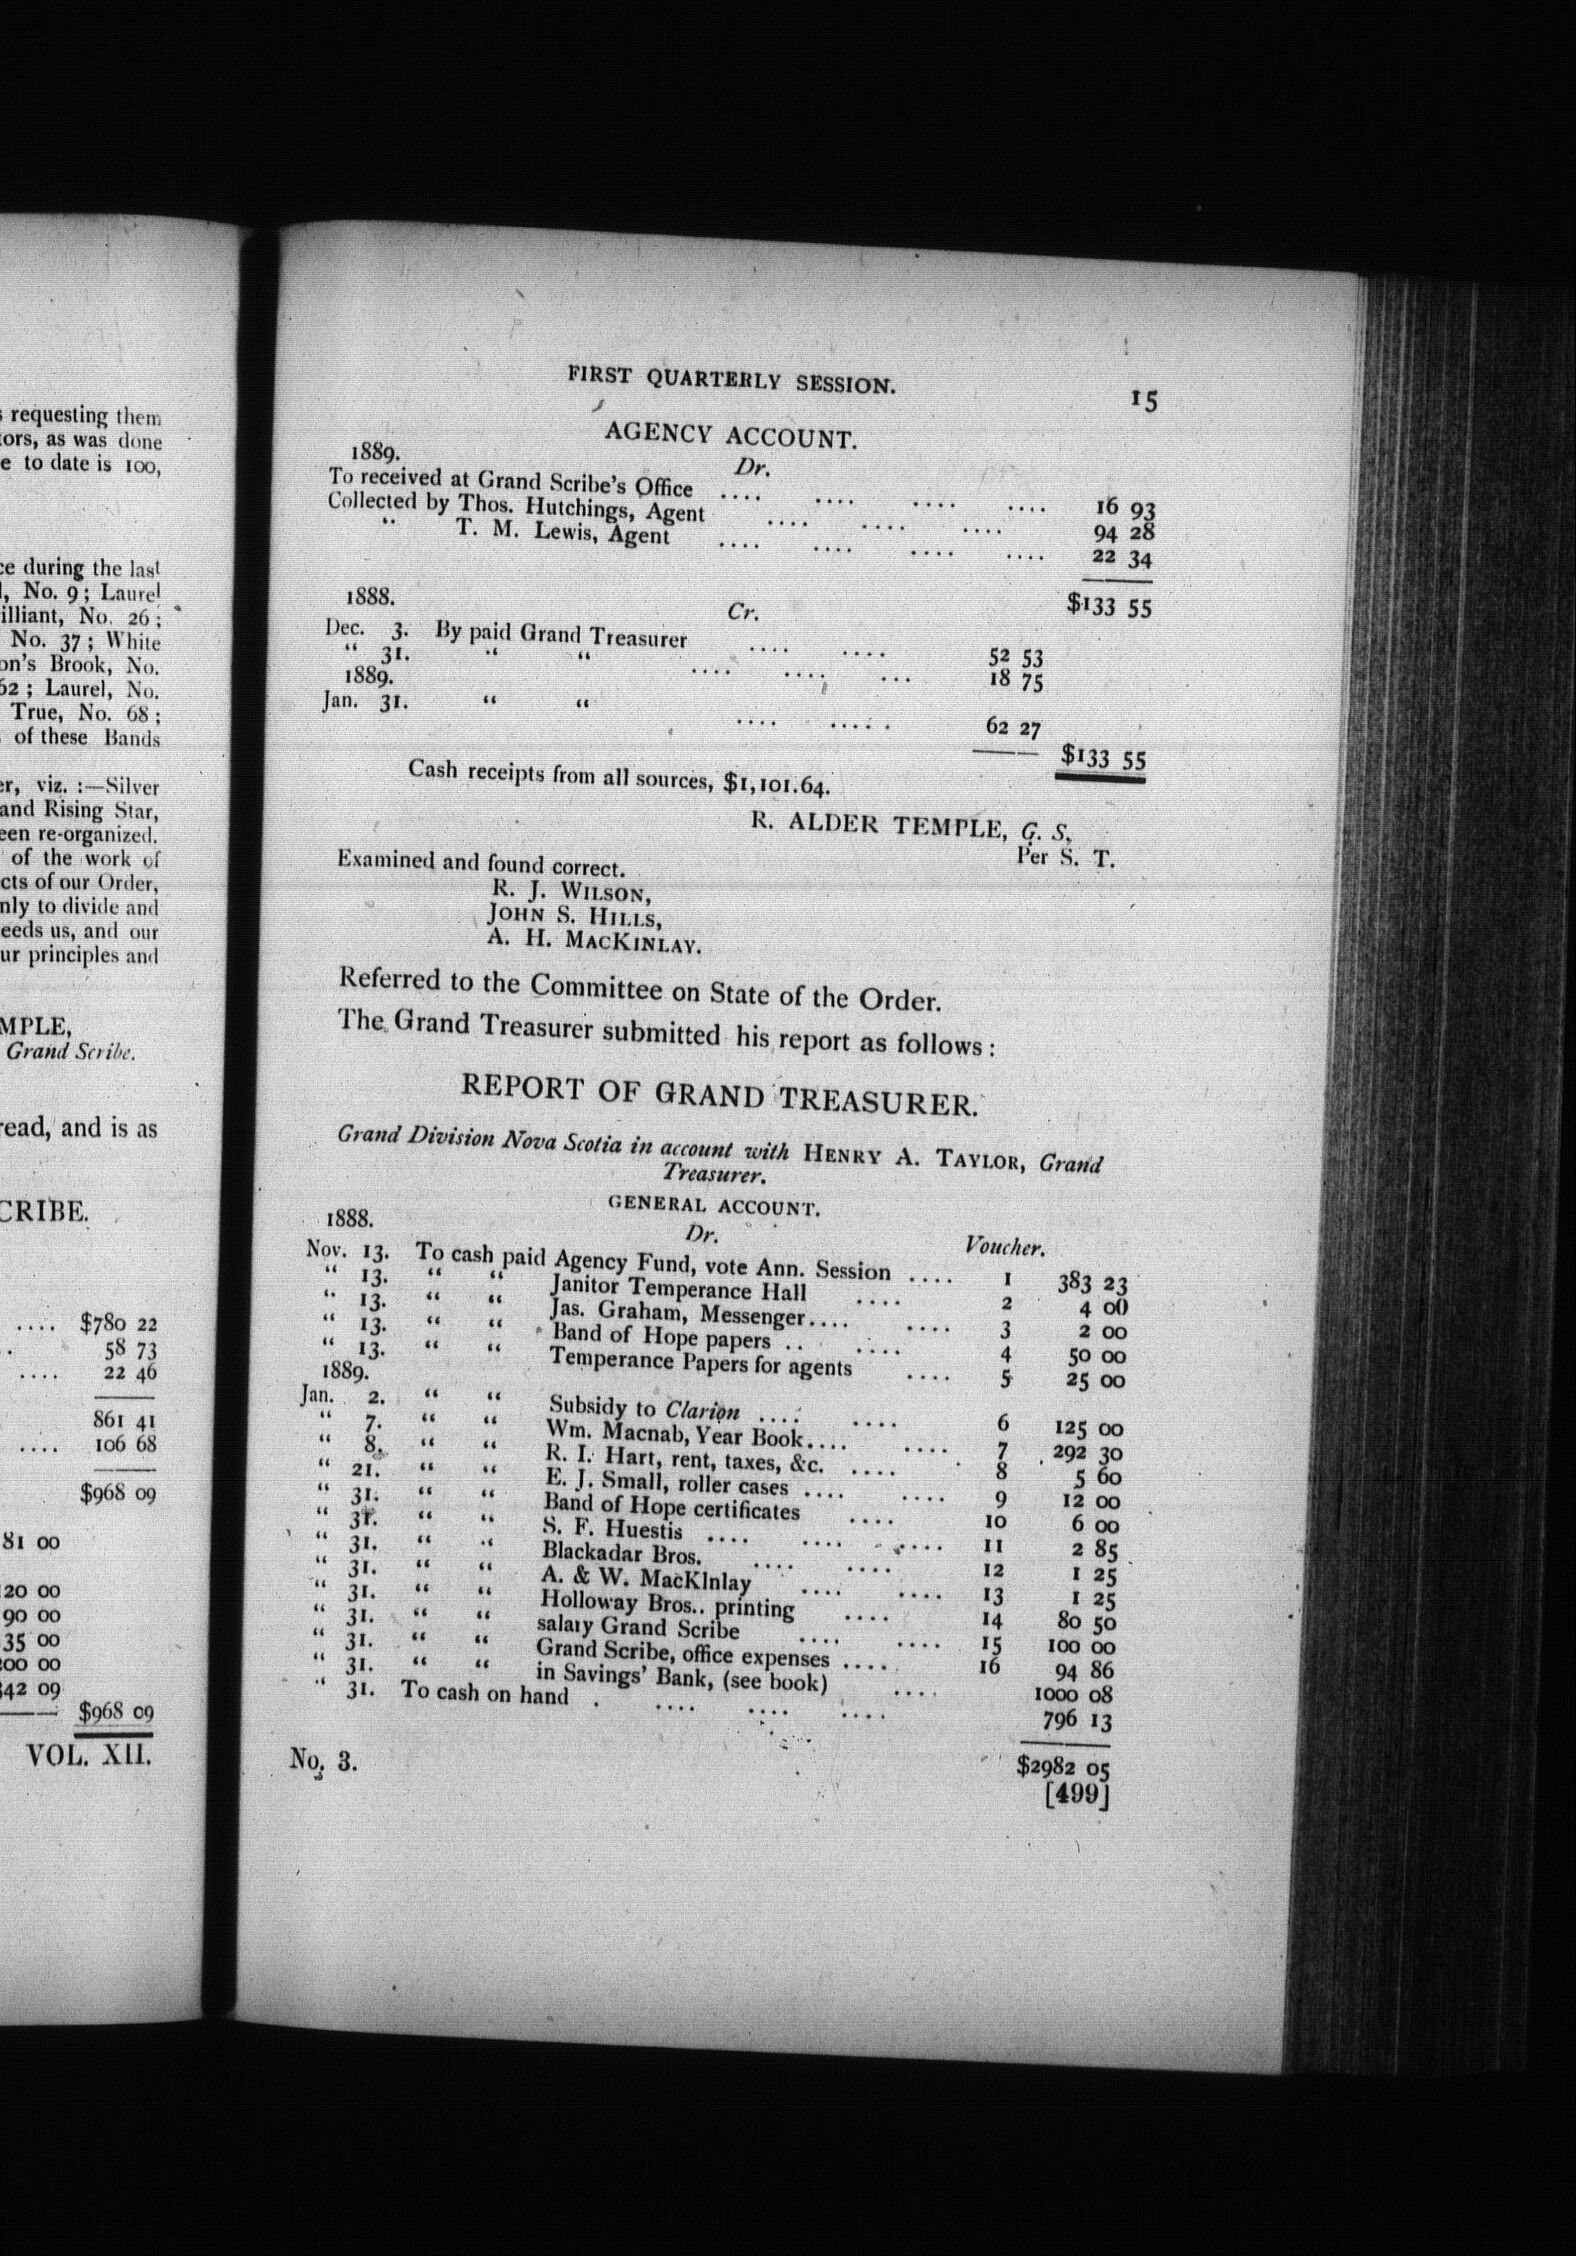 requesting them
tors, as was done
e to date is 100,
ce during the last
No. 9; Laurel
illiant, No. 26;
No. 37; White
on's Brook, No.
62; Laurel, No.
True, No. 68;
of these Bands
er, viz. :—Silver
and Rising Star,
een re-organized.
of the work of
cts of our Order,
nly to divide and
eeds us, and our
ur principles and
MPLE,
Grand Scribe.
read, and is as
CRIBE.
.... $780 22
58 73
.... 22 46
861 41
.... 106 68
$968 09
81 00
20 00
90 00
35 00
00 00
42 09
$968 09
VOL. XII.
FIRST QUARTERLY SESSION. 15
AGENCY ACCOUNT.
1889. Dr.
To received at Grand Scribe's Office .... .... .... .... 16 93
Collected by Thos. Hutchings, Agent .... .... .... 94 28
" T. M. Lewis, Agent .... .... .... .... 22 34
$133 55
1888. Cr.
Dec. 3. By paid Grand Treasurer .... .... 52 53
" 31. " " .... .... ... 18 75
1889.
Jan. 31. " " .... ..... 62 27
$133 55
Cash receipts from all sources, $1,101.64.
R. ALDER TEMPLE, G. S.
Per S. T.
Examined and found correct.
R. J. WILSON,
JOHN S. HILLS,
A. H. MACKINLAY.
Referred to the Committee on State of the Order.
The Grand Treasurer submitted his report as follows:
REPORT OF GRAND TREASURER.
Grand Division Nova Scotia in account with HENRY A. TAYLOR, Grand
Treasurer.
GENERAL ACCOUNT.
1888. Dr. Voucher.
Nov. 13. To cash paid Agency Fund, vote Ann. Session .... 1 383 23
" 13. " " Janitor Temperance Hall .... 2 4 00
" 13. " " Jas. Graham, Messenger.... .... 3 2 00
" 13. " " Band of Hope papers .. .... 4 50 00
" 13. " " Temperance Papers for agents .... 5 25 00
1889.
Jan. 2. " " Subsidy to Clarion .... .... 6 125 00
" 7. " " Wm. Macnab, Year Book.... .... 7 292 30
" 8. " " R. I. Hart, rent, taxes, &c. .... 8 5 60
" 21. " " E. J. Small, roller cases .... .... 9 12 00
" 31. " " Band of Hope certificates .... 10 6 00
" 31. " " S. F. Huestis .... .... .... 11 2 85
" 31. " " Blackadar Bros. .... .... 12 1 25
" 31. " " A. & W. MacKinlay .... .... 13 1 25
" 31. " " Holloway Bros.. printing .... 14 80 50
" 31. " " salary Grand Scribe .... .... 15 100 00
" 31. " " Grand Scribe, office expenses .... 16 94 86
" 31. " " in Savings' Bank, (see book) .... 1000 08
" 31. To cash on hand . .... .... .... 796 13
$2982 05
No. 3. [499]